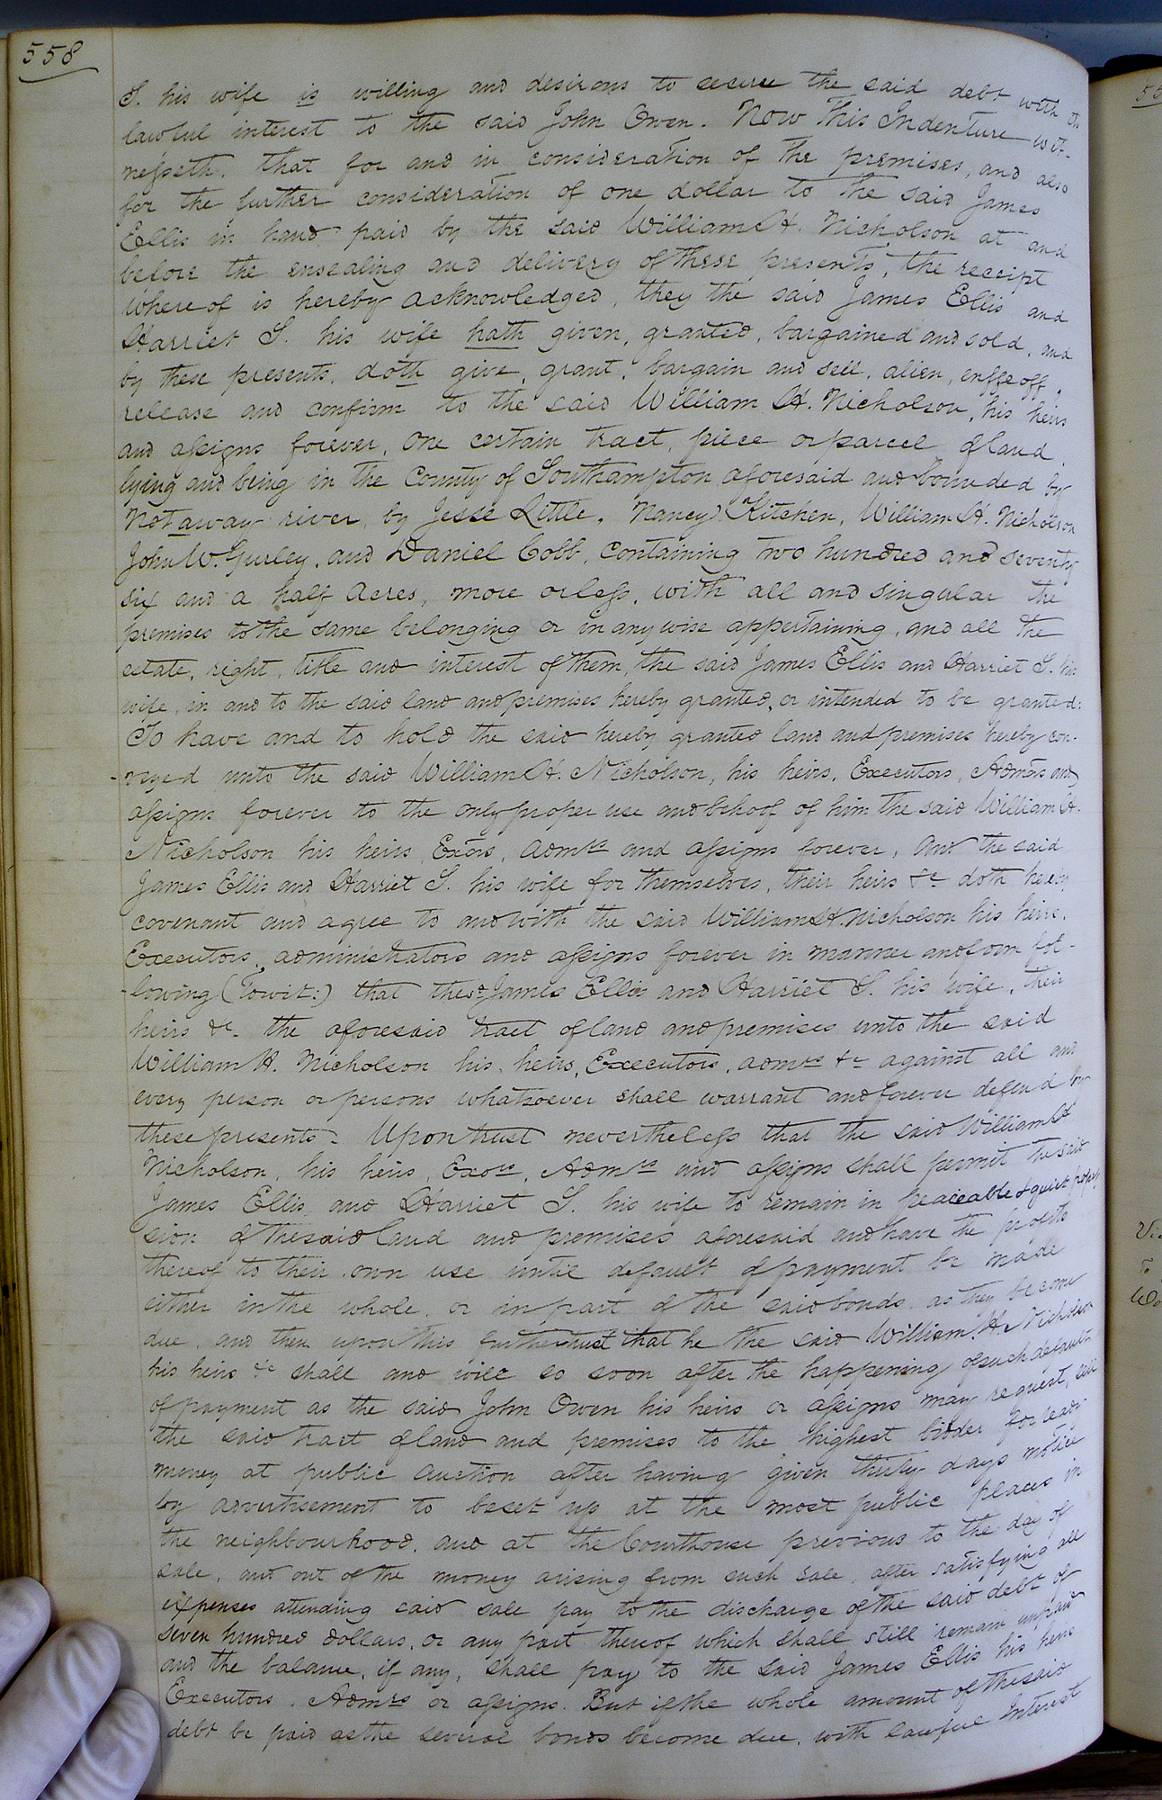 558
S. his wife is willing and desirous to secure the said debt with the
lawful interest to the said John Owen. Now This Indenture wit-
nesseth, that for and in consideration of the premises, and also
for the further consideration of one dollar to the said James
Ellis in hand paid by the said William H. Nicholson at and
before the ensealing and delivery of these presents, the receipt
whereof is hereby acknowledged, they the said James Ellis and
Harriet S. his wife hath given, granted, bargained and sold, and
by these presents, doth give, grant, bargain and sell, alien, enffeoff,
release and confirm to the said William H. Nicholson, his heirs
and assigns forever, One certain tract, piece or parcel of land,
lying and being in the County of Southampton aforesaid and bounded by
Notaway river, by Jesse Little, Nancy Kitchen, William H. Nicholson
John W. Gurley, and Daniel Cobb, containing two hundred and seventy
six and a half Acres, more or less, with all and singular the
premises to the same belonging or in any wise appertaining, and all the
estate, right, title and interest of them, the said James Ellis and Harriet S. his
wife, in and to the said land and premises hereby granted, or intended to be granted:
To have and to hold the said hereby granted land and premises hereby con-
-veyed unto the said William H. Nicholson, his heirs, Executors, Admors and
assigns forever to the only proper use and behoof of him the said William H.
Nicholson his heirs, Exors, Admrs and assigns forever, And the said
James Ellis and Harriet S. his wife for themselves, their heirs &c doth hereby
covenant and agree to and with the said William H. Nicholson his heirs,
Executors, administrators and assigns forever in manner and form fol-
-lowing (Towit:) that the sd James Ellis and Harriet S. his wife, their
heirs &c. the aforesaid tract of land and premises unto the said
William H. Nicholson his heirs, Executors, admrs &c against all and
every person or persons whatsoever shall warrant and forever defend by
these presents. Upon trust nevertheless that the said William H
Nicholson, his heirs, Exors, Admrs and assigns shall permit the said
James Ellis, and Harriet S. his wife to remain in peaceable & quiet posses-
sion of the said land and premises aforesaid and have the profits
thereof to their own use until default of payment be made
either in the whole, or in part of the said bonds, as they become
due, and then upon this further trust that he the said William H. Nicholson
his heirs &c shall and will so soon after the happening of such default
of payment as the said John Owen his heirs or assigns may request, sell
the said tract of land and premises to the highest bidder for ready
money at public auction after having given thirty days notice
by advertisement to be set up at the most public places in
the neighbourhood, and at the Courthouse previous to the day of
sale, and out of the money arising from such sale, after satisfying all
expenses attending said sale pay to the discharge of the said debt of
seven hundred dollars, or any part thereof which shall still remain unpaid
and the balance, if any, shall pay to the said James Ellis his heirs
Executors, Admrs or assigns. But if the whole amount of the said
debt be paid as the several bonds become due, with lawful Interest